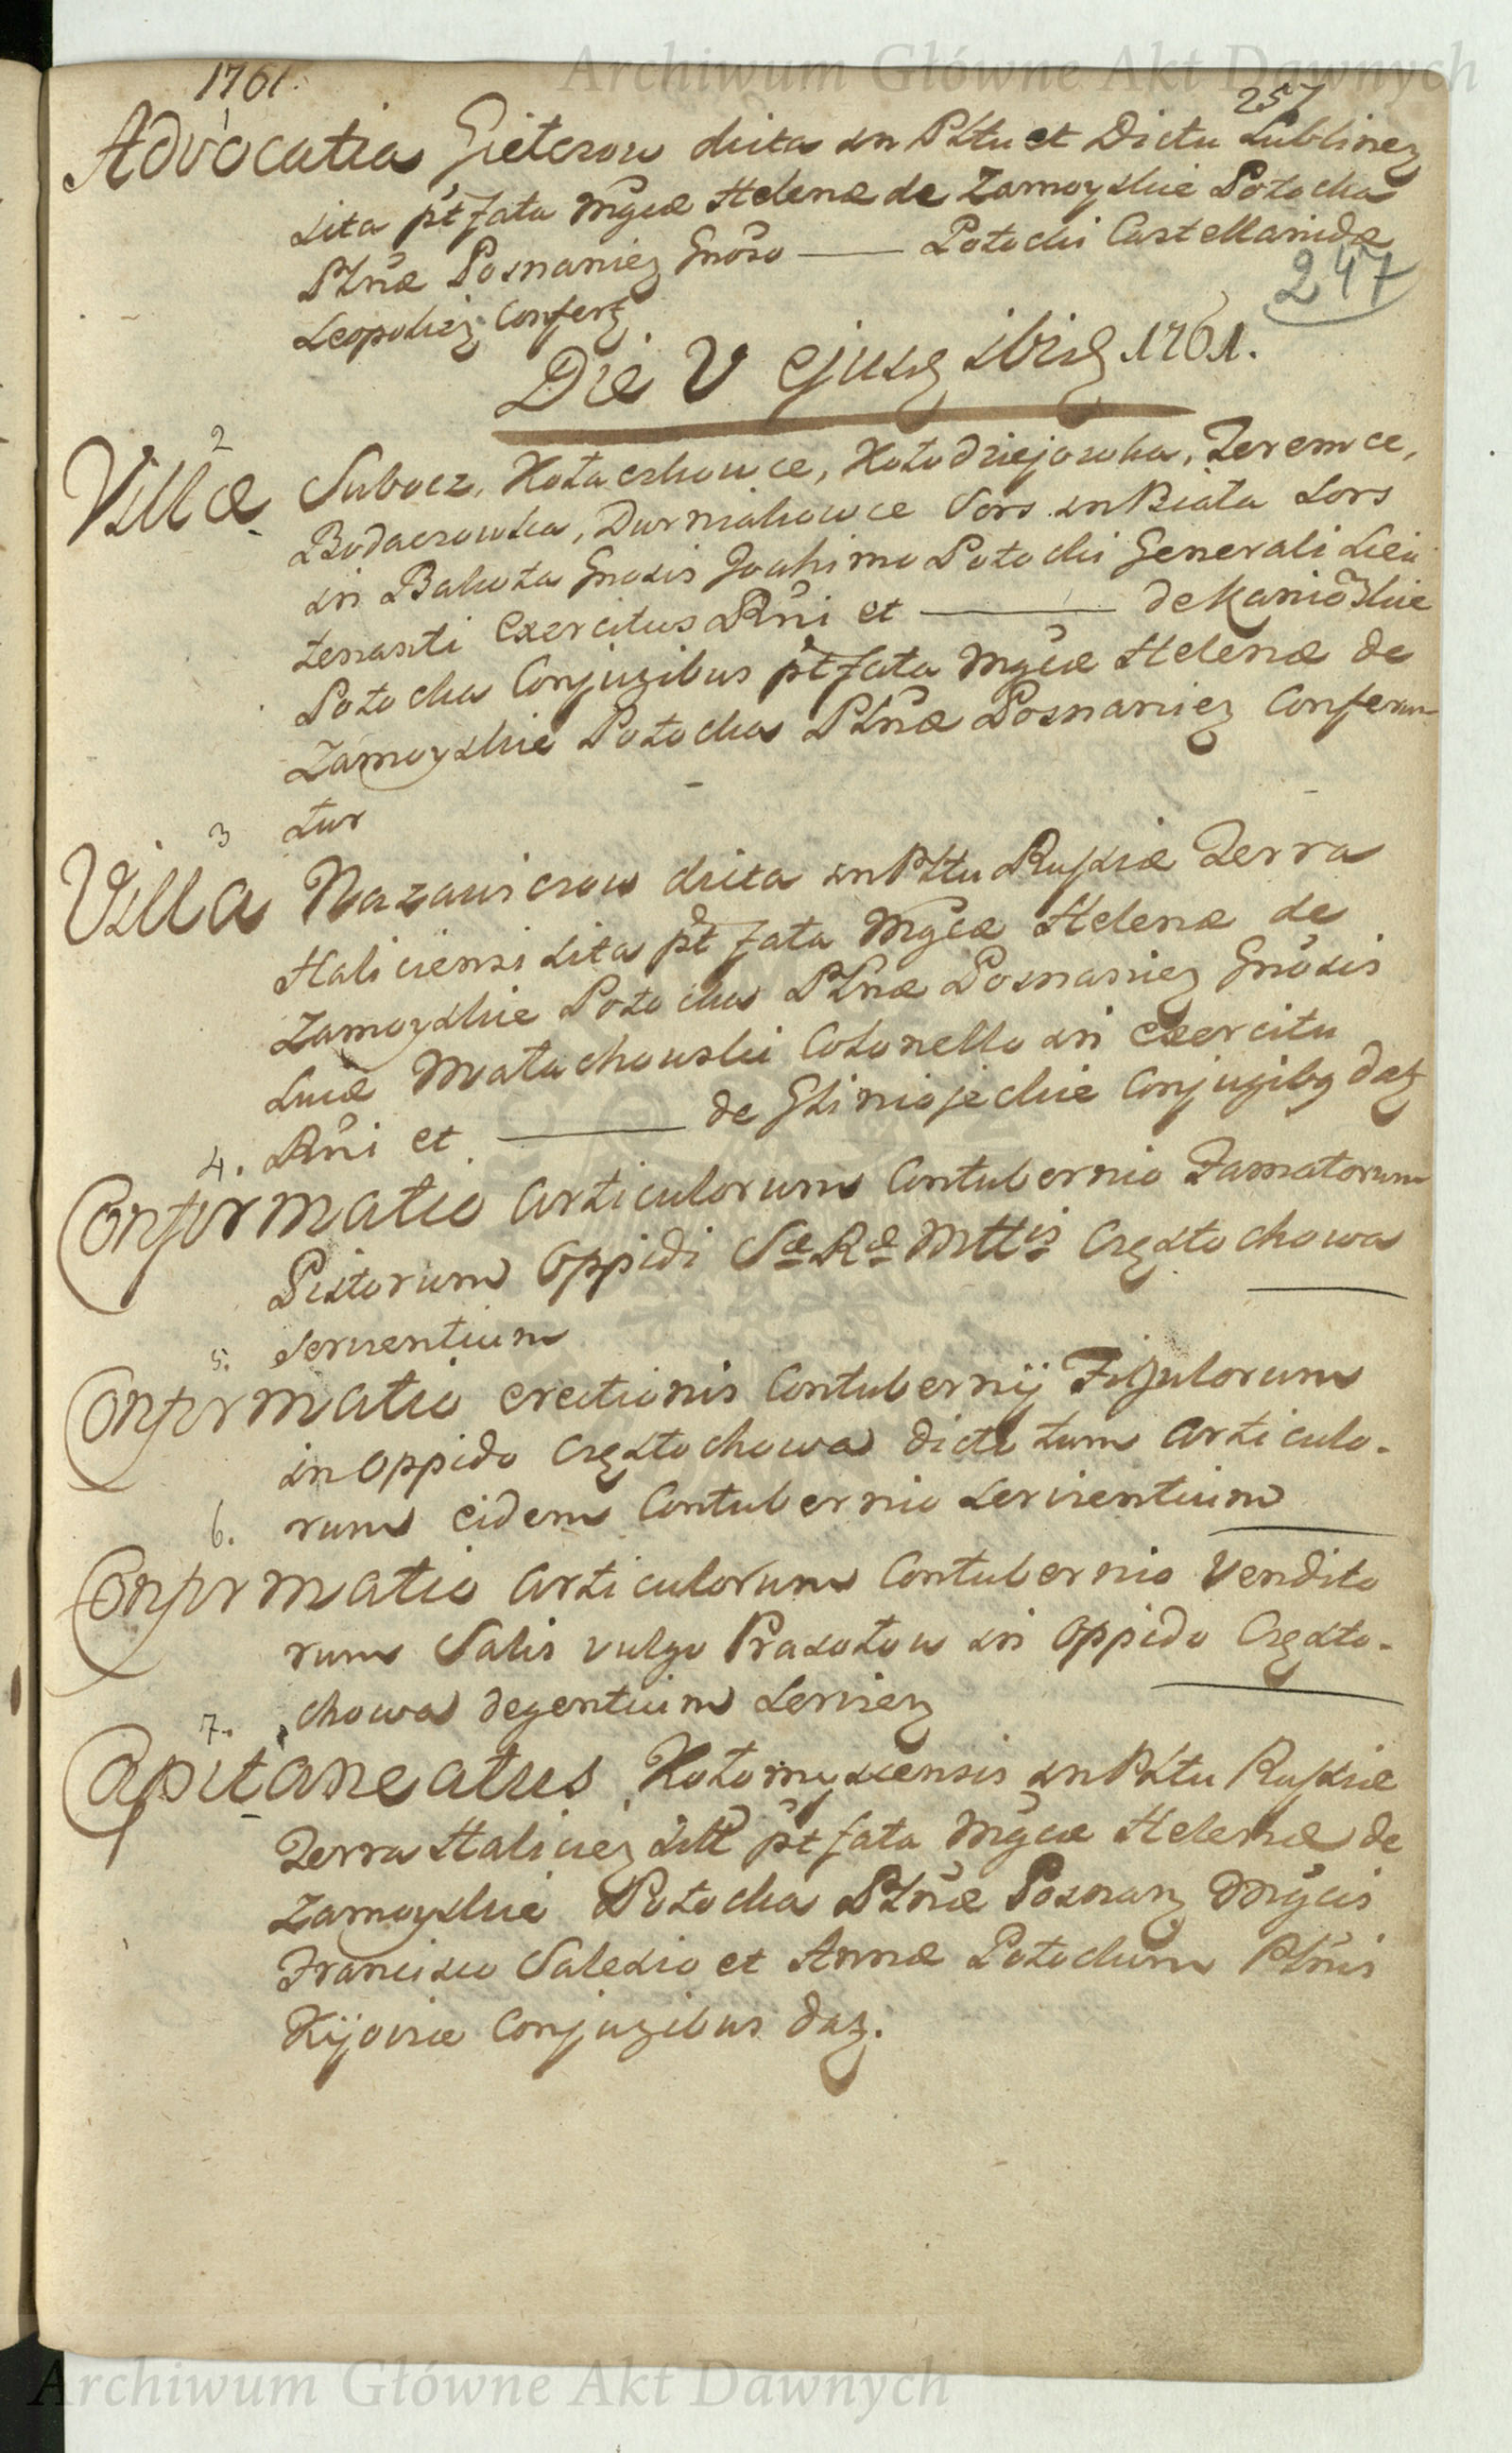 Archiwum Główne Akt Dawnych
1761.
257
Advocatia Gielczow dicta in Pltu et Dictu Lublinen
sita pt fata Mgcæ Helenæ de Zamoyskie Potocka
Plnæ Posnanien Gnoso — Potocki Castellanidæ
247
Leopolien Confert
Die V ejusd ibid 1761.
2
Villæ Subocz, Kołaczkowce, Kołodziejowka, Jeremce,
Bodaczowka, Durniakowce Sors in Biała Sors
in Bakota Gnosis Joachimo Potocki Generali Lieu
tenanti Exercitus Rni et — de Kaniöskie
Potocka Conjugibus pt fata Mgcæ Helenæ de
Zamoyskie Potocka Plnæ Posnanien Conferun
tur
3
Villa Nazawiczow dicta in Pltu Russiæ Terra
Haliciensi sita pt fata Mgcæ Helenæ de
Zamoyskie Potocka Plnæ Posnanien Gnosis
Lucæ Małachowski Colonello in exercitu
Rni et — de Glinojeckie Conjugibg datz
4.
Confirmatio Articulorum Contubernio Famatorum
Pistorum Oppidi Sæ Ræ Mttis Częstochowa
servientium
5.
Confirmatio erectionis Contubernij Figulorum
in Oppido Częstochowa dicto tum Articulo-
rum eidem Contubernio servientium
6.
Confirmatio Articulorum Contubernio Vendito
rum Salis vulgo Prasołow in Oppido Często-
chowa degentium servien
7.
Capitaneatus Kołomyiensis in Pltu Russiæ
Terra Halicien sitt pt fata Mgcæ Helenæ de
Zamoyskie Potocka Plnæ Posnan Mgcis
Francisco Salesio et Annæ Potockim Plnis
Kijoviæ Conjugibus datz.
Archiwum Główne Akt Dawnych